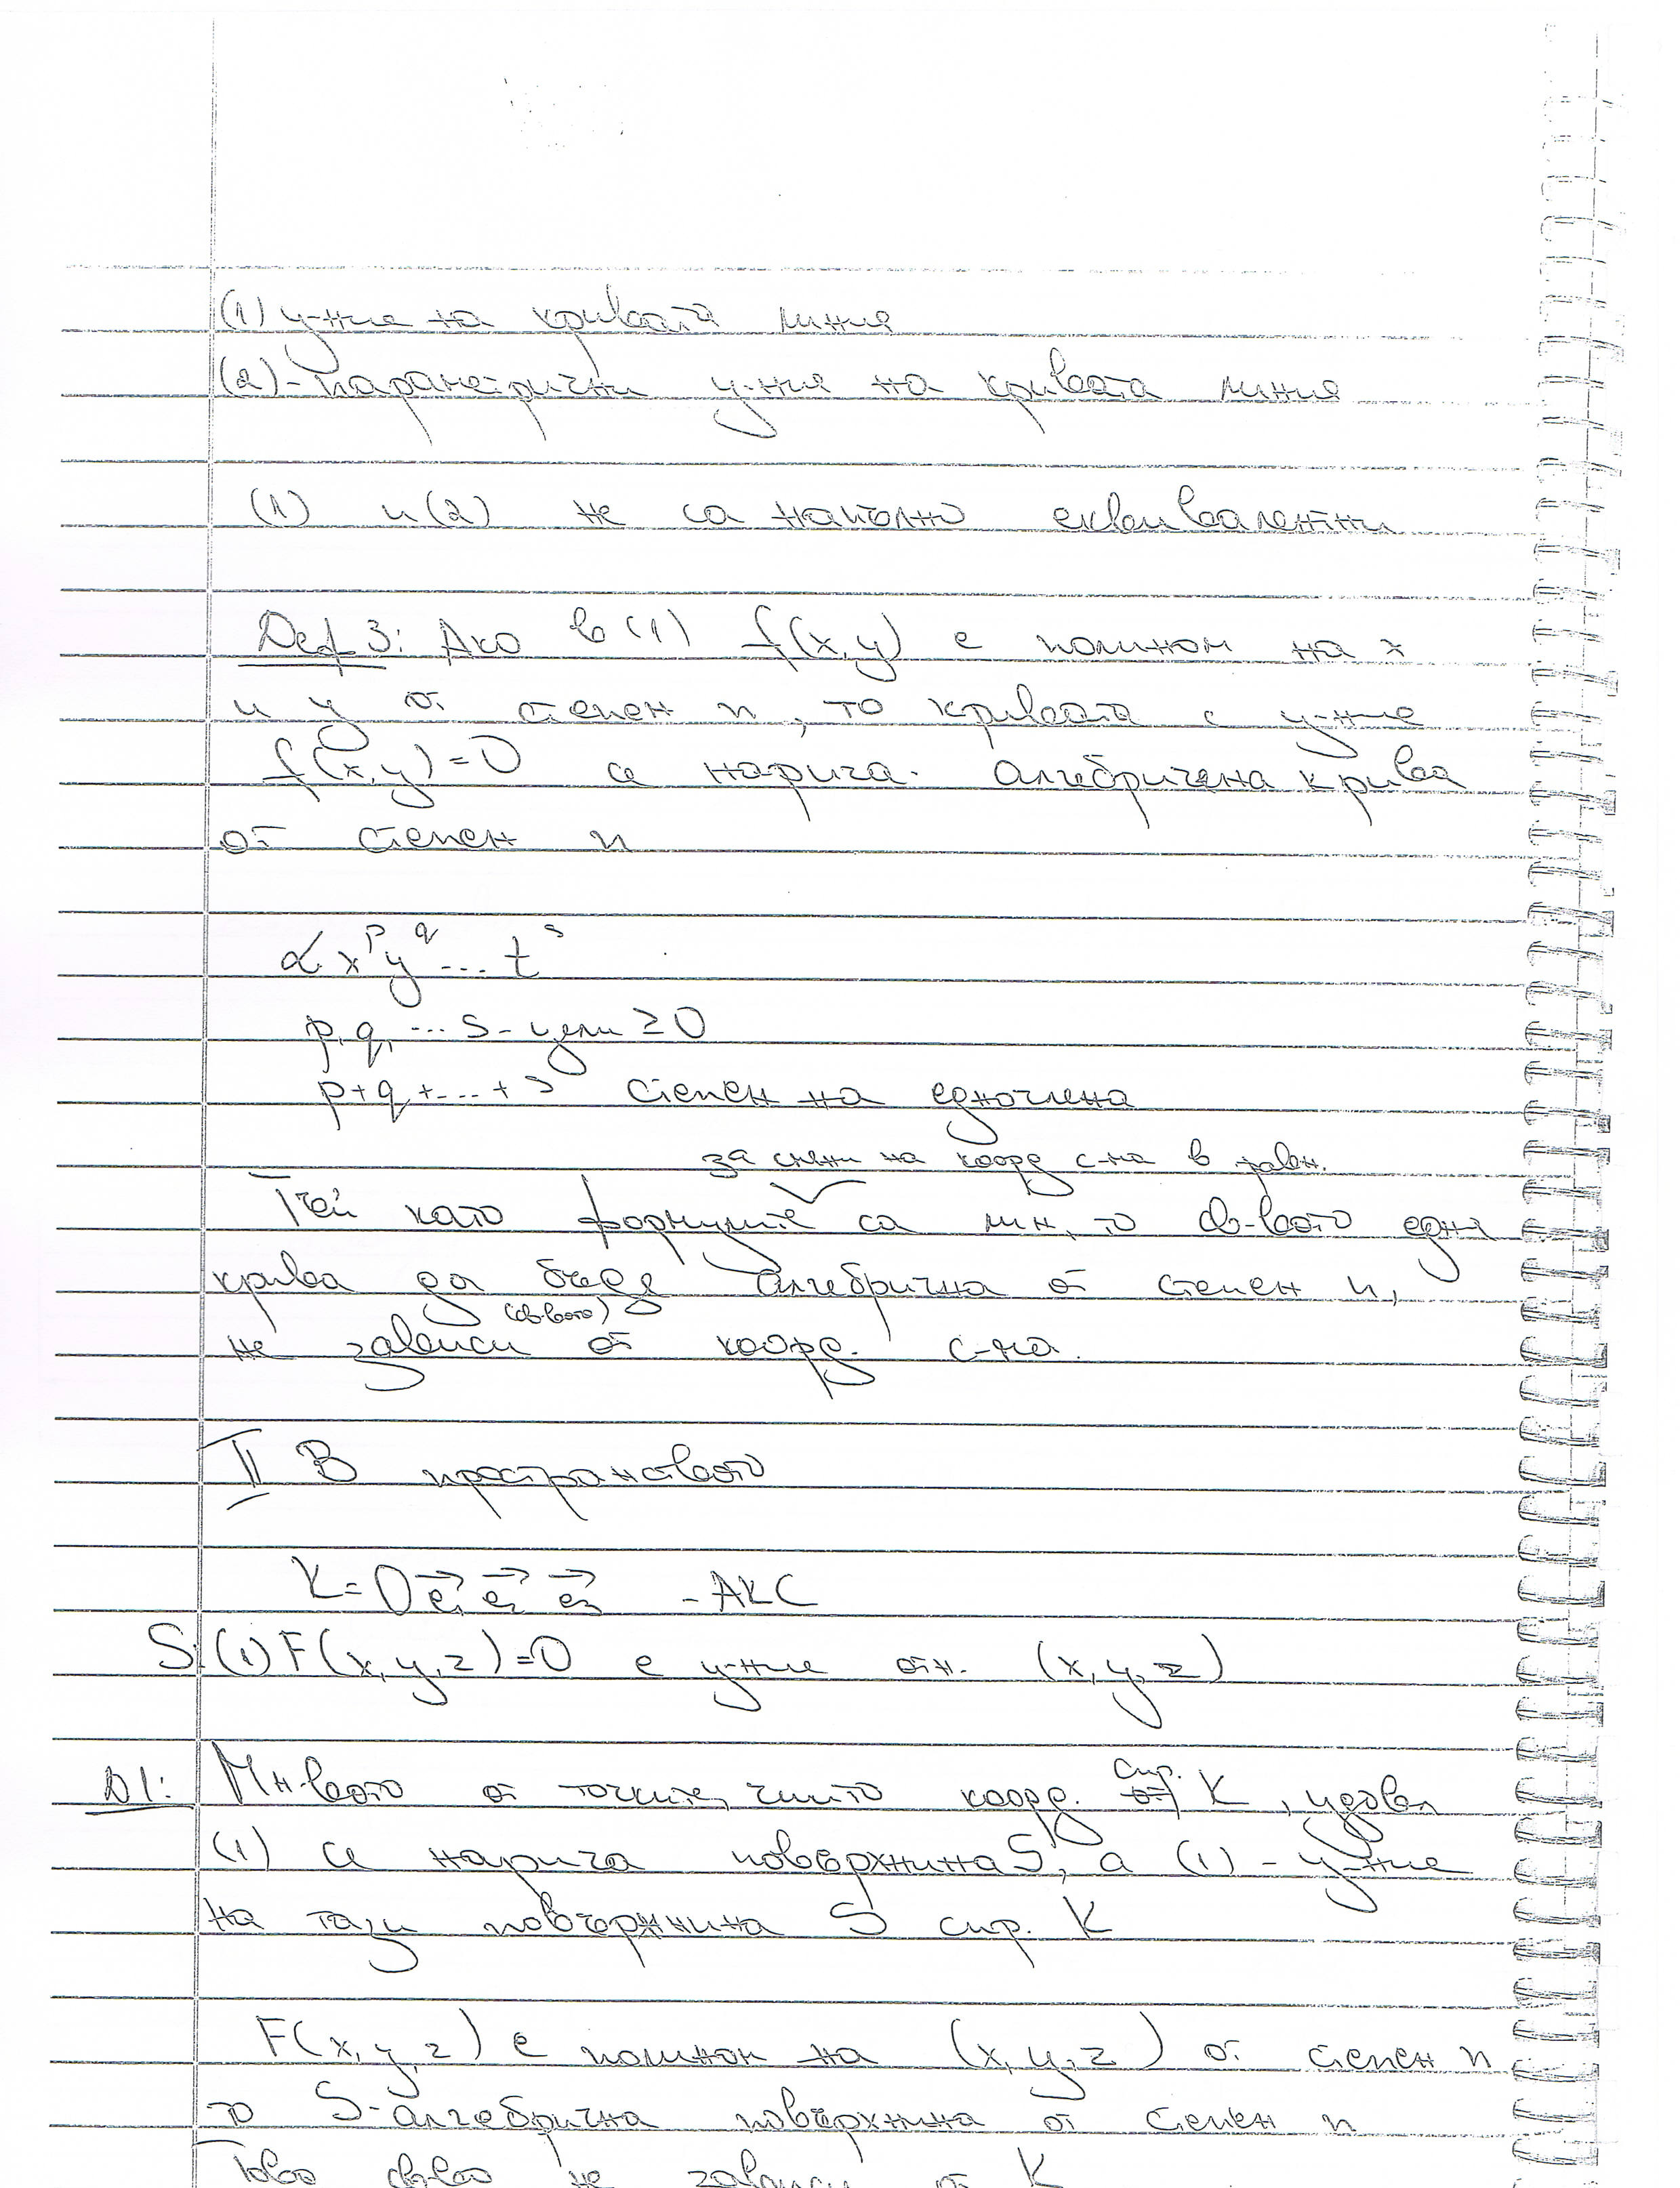 (1) у-ние на кривата линия
(2) - параметрични у-ния на кривата линия
(1) и (2) не са напълно еквивалентни
Деф 3: Ако в (1) f(x,y) е полином на x
и y от степен n, то кривата с у-ние
f(x,y)=0 се нарича алгебрична крива
от степен n
α x^p y^q ... t^s
p, q, ... s - цели ≥ 0
p+q+...+s степен на едночлена
за смени на коорд с-ма в равн.
Тъй като формулите са лин, то св-вото една
крива да бъде алгебрична от степен n,
(св-вото)
не зависи от коорд. с-ма.
II В пространството
K=O e₁ e₂ e₃ - АКС
S: (1) F(x,y,z)=0 е у-ние отн. (x,y,z)
Д1: Мн-вото от точките, чиито коорд. спр. K, удовл
(1) се нарича повърхнина S, а (1) - у-ние
на тази повърхнина S спр. K
F(x,y,z) е полином на (x,y,z) от степен n
то S - алгебрична повърхнина от степен n
Това св-во не зависи от K